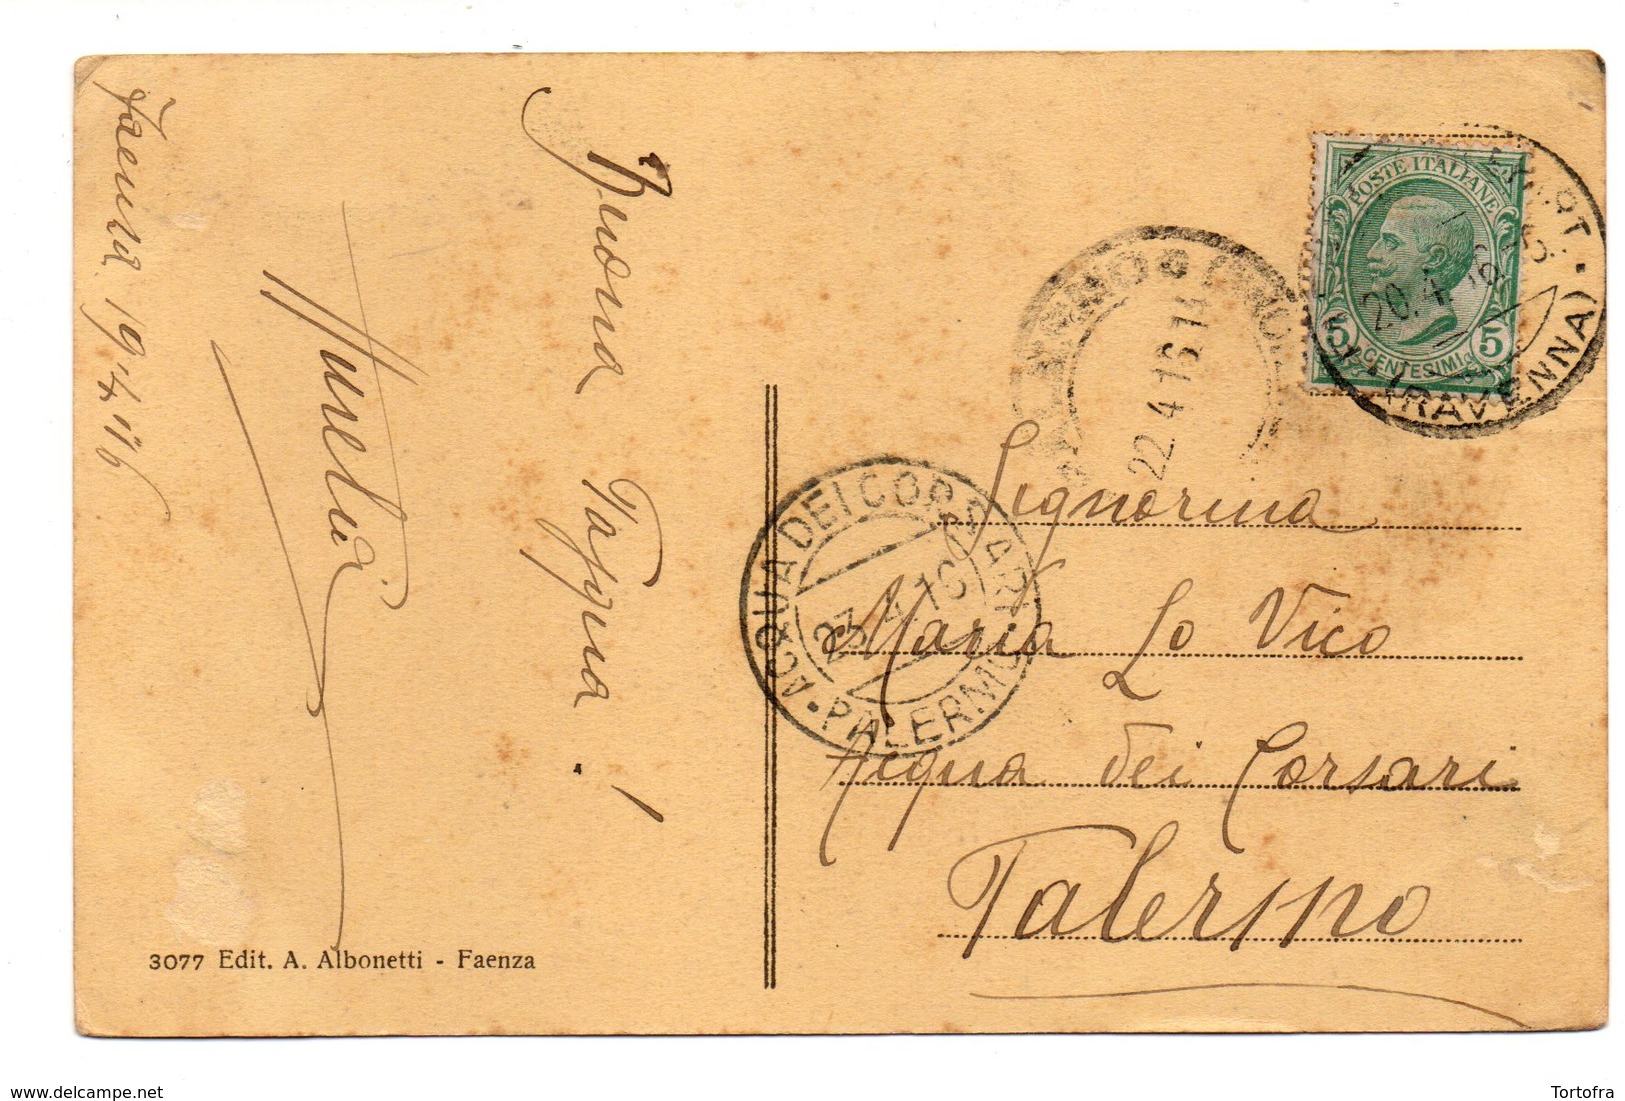 Faenza 19·4·916
Buona Pasqua!
Aurelia
3077 Edit. A. Albonetti - Faenza
POSTE ITALIANE
5 CENTESIMI 5
20.4.16
(RAVENNA)
22 4 16 14
ACQUA DEI CORSARI
23.4.16
PALERMO
Signorina
Maria Lo Vico
Acqua dei Corsari
Palermo
www.delcampe.net
Tortofra